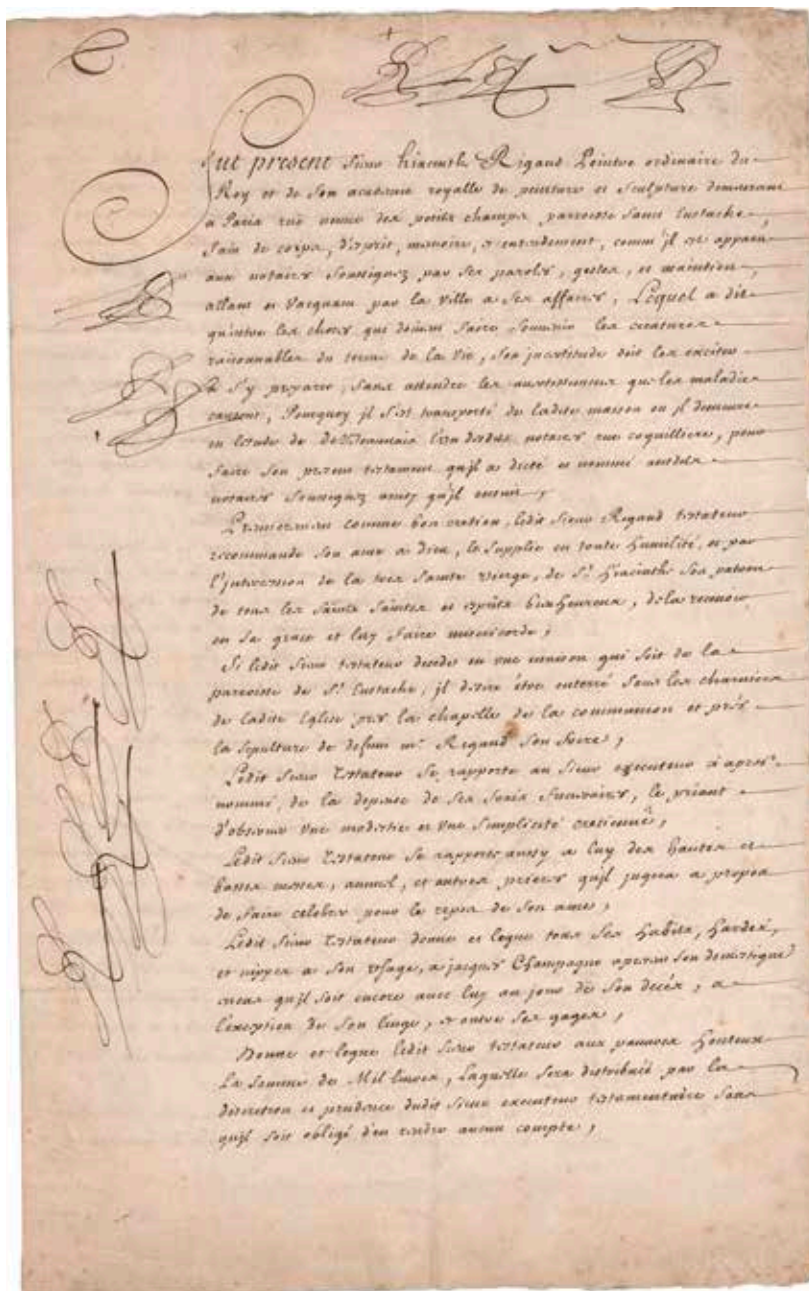 Fut present Sieur hiacinthe Rigaud Peintre ordinaire du
Roy et de son academie royalle de peinture et sculpture demeurant
a Paris rue neuve des petits champs parroisse saint Eustache,
sain de corps, d'esprit, memoire, et entendement, comm'jl est apparu
aux notaires soussignez par ses paroles, gestes, et maintien,
allant et vacquant par la ville a ses affaires, Lequel a dit
qu'entre les choses qui doivent faire souvenir les creatures
raisonnables du terme de la vie, son jncertitude doit les exciter
a s'y preparer, sans attendre les avertissemens que les maladies
causent, Pourquoy jl s'est transporté de ladite maison ou jl demeure
en l'etude de l'un desdits notaires rue coquilliere, pour
faire son present testament qu'jl a dicté et nommé ausdits
notaires soussignez ainsy qu'jl ensuit,
Premierement comme bon cretien, ledit sieur Rigaud testateur
recommande son ame a dieu, le supplie en toute humilité, et par
l'jntercession de la tres sainte vierge, de St. Hiacinthe son patron
de tous les saints saintes et esprits bienheureux, de la recevoir
en sa grace et luy faire misericorde,
Si ledit sieur testateur decede en une maison qui soit de la
parroisse de St. Eustache, jl desire être enterré sous les charniers
de ladite Eglise pres la chapelle de la communion et prés
la sepulture de defunt mr. Rigaud son frere,
Ledit sieur Testateur se rapporte au sieur executeur cy aprés
nommé, de la depense de ses frais funeraires, le priant
d'observer une modestie et une simplicité cretienne,
Ledit sieur Testateur se rapporte aussy a luy des hautes et
basses messes, annuel, et autres prieres qu'jl jugera a propos
de faire celebrer pour le repos de son ame,
Ledit sieur Testateur donne et legue tous ses habits, hardes,
et nippes a son usage, a jacques Champagne apresent son domestique
encas qu'jl soit encore avec luy au jour de son decés, a
l'exception de son linge, et outre ses gages,
Donne et legue ledit sieur testateur aux pauvres honteux
La somme de Mil livres, Laquelle sera distribuée par la
discretion et prudence dudit sieur executeur testamentaire sans
qu'jl soit obligé d'en rendre aucun compte,